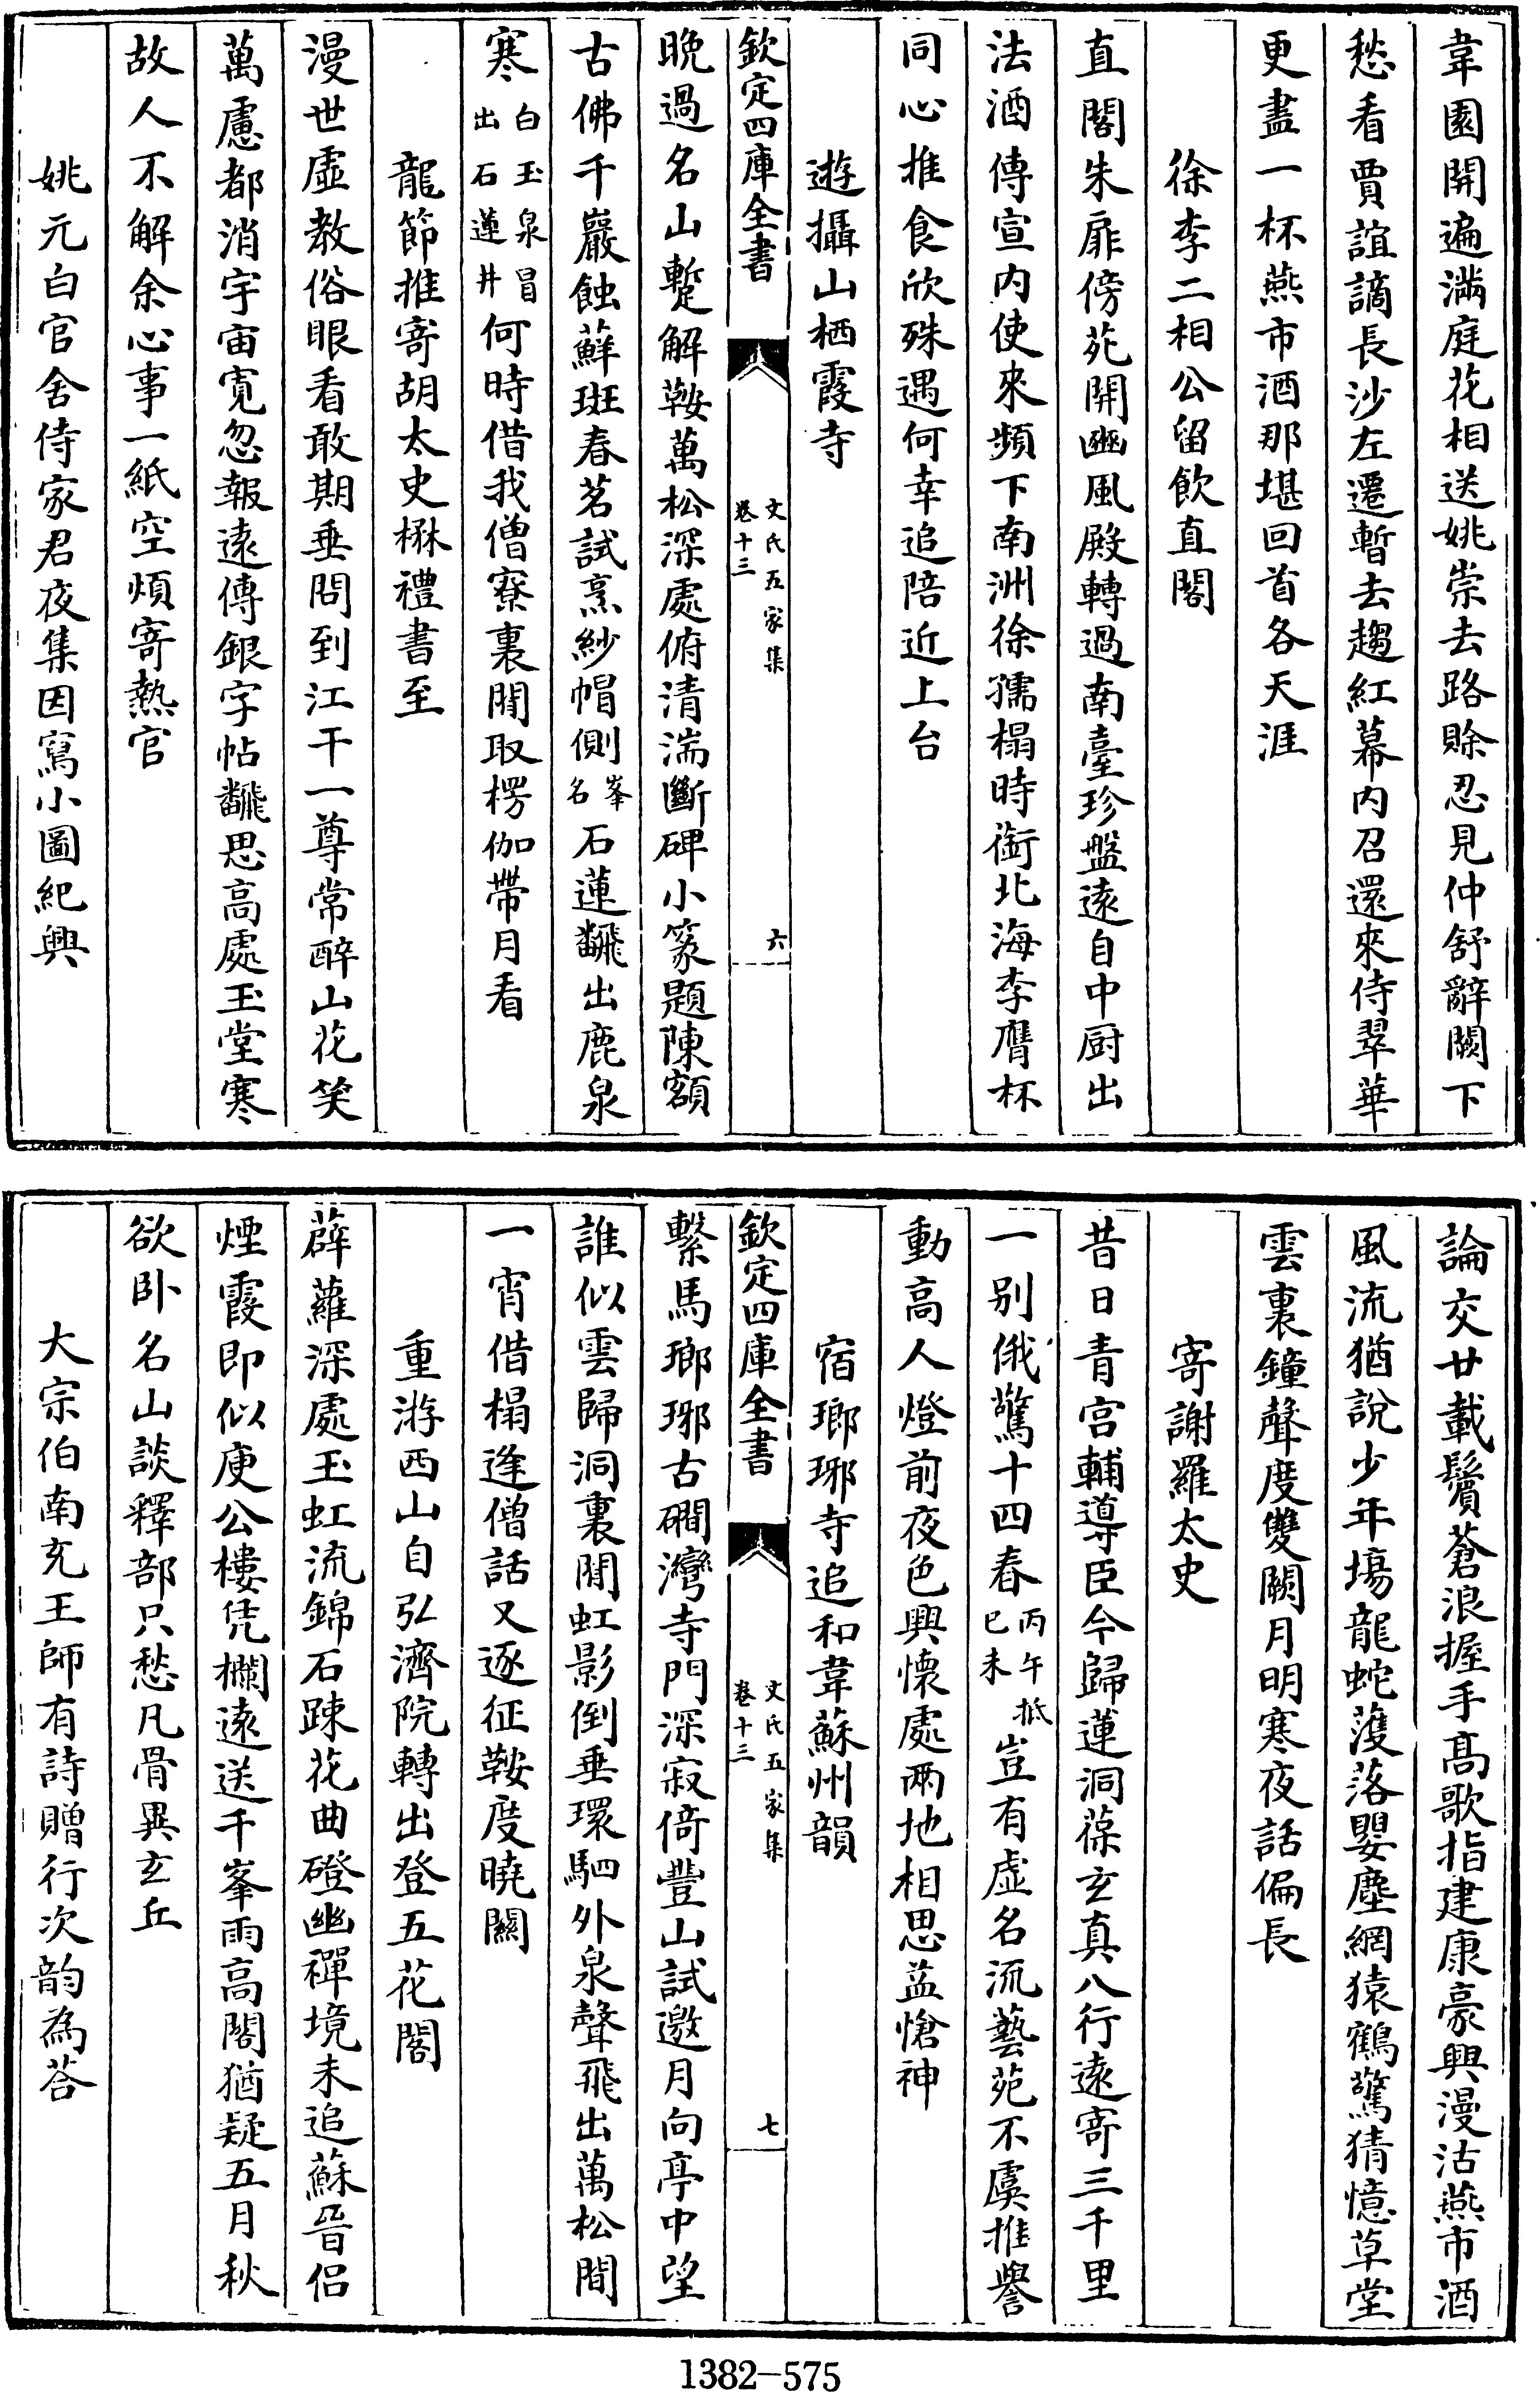 韋園開遍滿庭花相送姚崇去路賖忍見仲舒辭闕下
愁看賈誼謫長沙左遷暫去趨紅幕内召還來侍翠華
更盡一杯燕市酒那堪回首各天涯
徐李二相公留飲直閣
直閣朱扉傍苑開豳風殿轉過南臺珍盤遠自中厨出
法酒傳宣内使來頻下南洲徐孺榻時銜北海李膺杯
同心推食欣殊遇何幸追陪近上台
遊攝山栖霞寺
欽定四庫全書
文氏五家集
卷十三
六
晩過名山蹔解鞍萬松深處俯清湍斷碑小篆題陳額
古佛千巖蝕蘚斑春茗試烹紗帽側峯名石蓮飜出鹿泉
寒白玉泉冒出石蓮井何時借我僧寮裏閒取楞伽帶月看
龍節推寄胡太史楙禮書至
漫世虛教俗眼看敢期垂問到江干一尊常醉山花笑
萬慮都消宇宙寛忽報遠傳銀字帖飜思高處玉堂寒
故人不解余心事一紙空煩寄熱官
姚元白官舍侍家君夜集因寫小圖紀興
論交廿載鬢蒼浪握手髙歌指建康豪興漫沽燕市酒
風流猶說少年塲龍蛇濩落嬰塵網猿鶴驚猜憶草堂
雲裏鐘聲度雙闕月明寒夜話偏長
寄謝羅太史
昔日青宫輔導臣今歸蓮洞葆玄真八行遠寄三千里
一别俄驚十四春丙午抵已未豈有虛名流藝苑不虞推譽
動高人燈前夜色興懷處兩地相思益愴神
宿瑯琊寺追和韋蘇州韻
欽定四庫全書
文氏五家集
卷十三
七
繫馬瑯琊古磵灣寺門深寂倚豐山試邀月向亭中望
誰似雲歸洞裏閒虹影倒垂環駟外泉聲飛出萬松間
一宵借榻逢僧話又逐征鞍度曉關
重游西山自弘濟院轉出登五花閣
薜蘿深處玉虹流錦石踈花曲磴幽禪境未追蘇晉侣
煙霞即似庾公樓凭欄遠送千峯雨高閣猶疑五月秋
欲卧名山談釋部只愁凡骨異玄丘
大宗伯南充王師有詩贈行次韵為荅
1382-575